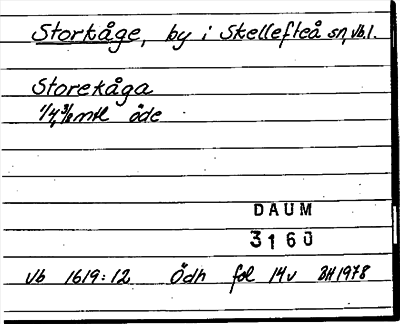 Storkåge, by i Skellefteå sn, Vb l.
Storekåga
1/4, 3/8 mtl öde
DAUM
3160
Vb 1619:12 Ödh fol 14v BH 1978